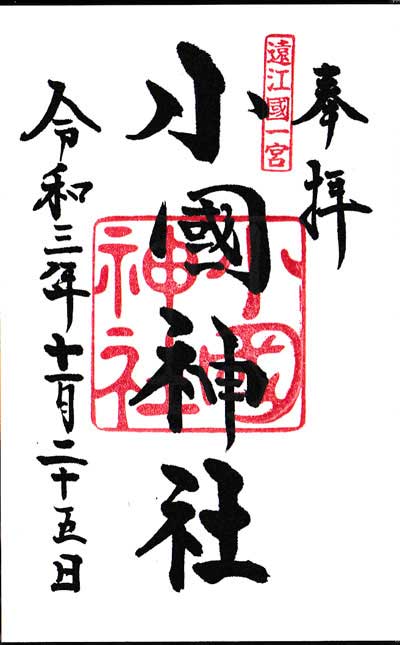 奉拝
遠江國一宮
小國神社
小國神社
令和三年十一月二十五日